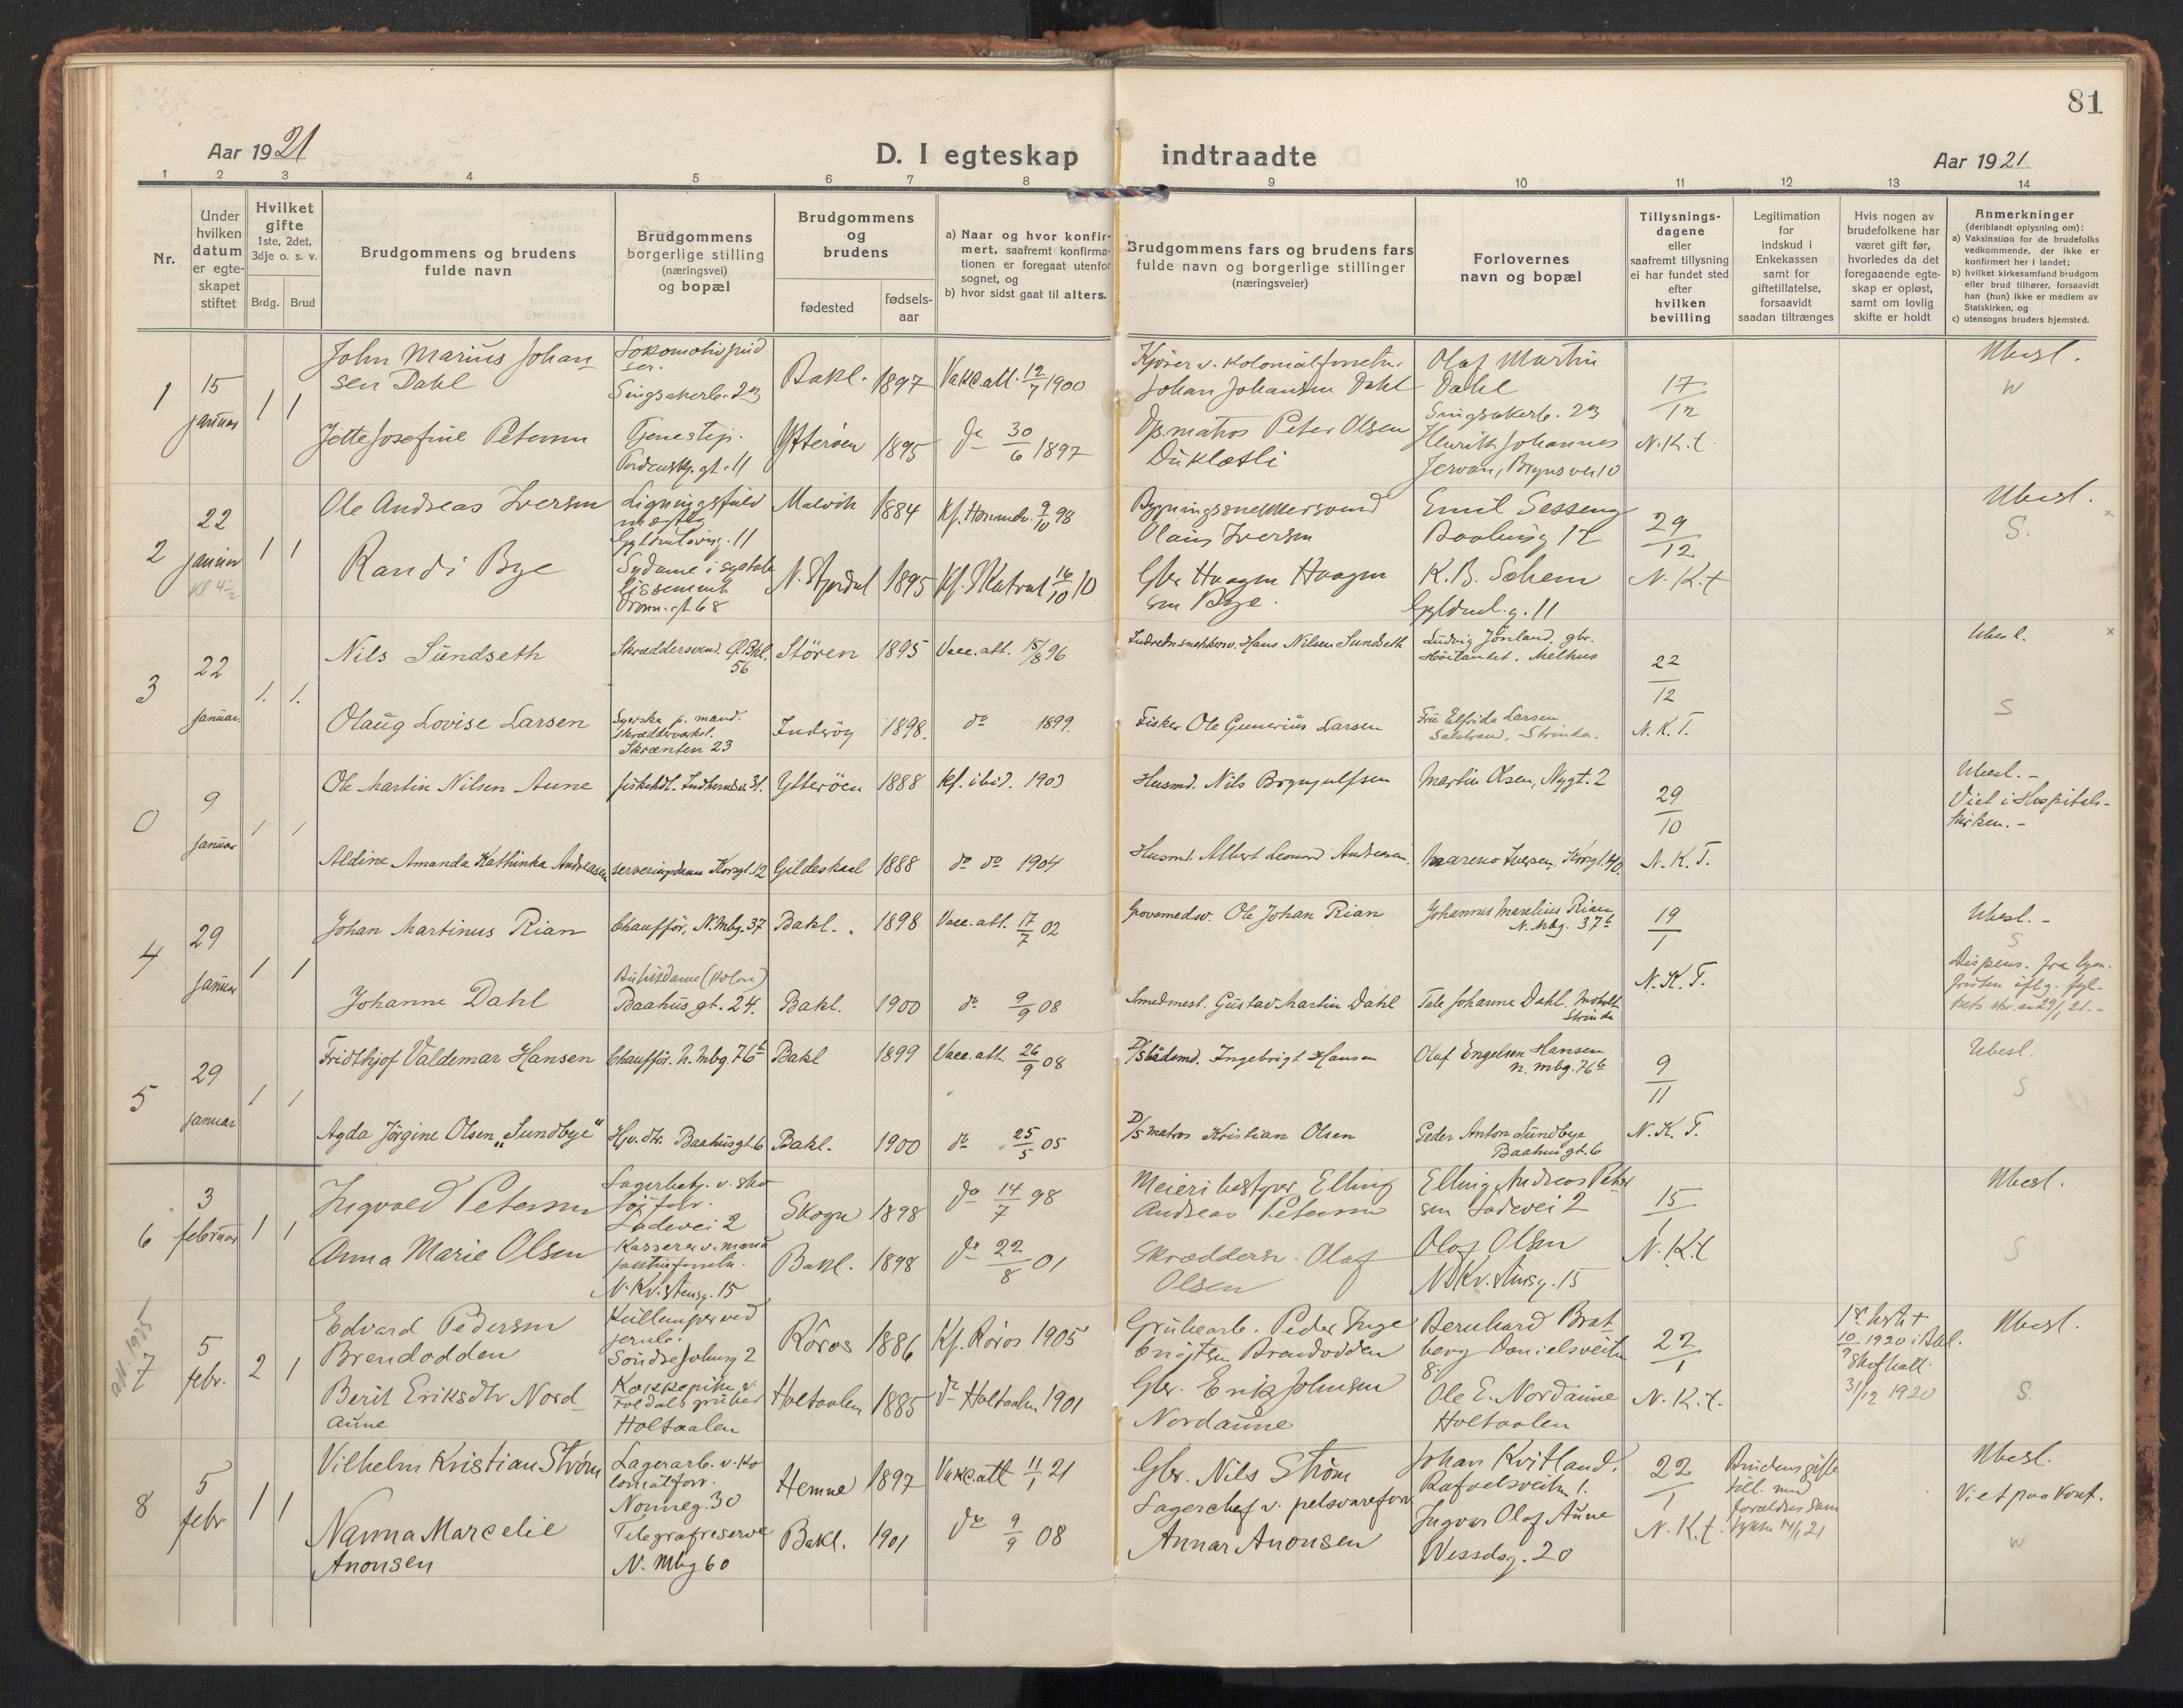 81
Aar 1921
D. I egteskap indtraadte
Aar 1921
1 2 3 4 5 6 7 8 9 10 11 12 13 14
Nr.
Under hvilken datum er egteskapet stiftet
Hvilket gifte 1ste, 2det, 3dje o. s. v.
Brdg. Brud
Brudgommens og brudens fulde navn
Brudgommens borgerlige stilling (næringsvei) og bopæl
Brudgommens og brudens
fødested
fødselsaar
a) Naar og hvor konfirmert, saafremt konfirmationen er foregaat utenfor sognet, og
b) hvor sidst gaat til alters.
Brudgommens fars og brudens fars fulde navn og borgerlige stillinger (næringsveier)
Forlovernes navn og bopæl
Tillysningsdagene eller saafremt tillysning ei har fundet sted efter hvilken bevilling
Legitimation for indskud i Enkekassen samt for giftetillatelse, forsaavidt saadan tiltrænges
Hvis nogen av brudefolkene har været gift før, hvorledes da det foregaaende egteskap er opløst, samt om lovlig skifte er holdt
Anmerkninger (deriblandt oplysning om):
a) Vaksination for de brudefolks vedkommende, der ikke er konfirmert her i landet;
b) hvilket kirkesamfund brudgom eller brud tilhører, forsaavidt han (hun) ikke er medlem av Statskirken, og
c) utensogns bruders hjemsted.
1 15 januar 1 1
John Marius Johansen Dahl
Singsakerb. 23
Bakl. 1897 Vakc.att. 12/7 1900
Kjører v. Kolonialforretn. Johan Johansen Dahl
Olaf Martin Dahl Singsakerb. 23
17/12 N.K.t.
Ubesl. W
Jette Josefine Petersen
Tjenestep. Tordenskj. gt. 11
Ytterøen 1895 do 30/6 1897
Ds. matros Peter Olsen
Henrik Johannes Jervan, Brynsvei 10
2 22 januar kl 4½ 1 1
Ole Andreas Iversen
Ligningsfuldmægtig
Malvik 1884 Kf. Hommelv. 9/10 98
Bygningssnekkersvend Olaus Iversen
Emil Sesseng
29/12 N.K.t
Ubesl. S.
Randi Bye
N. Stjørdal 1895 Kf. Skatval 16/10 10
Gbr Haagen Haagensen Bye.
K.B. Solem Gyldenl. g. 11
3 22 januar 1. 1.
Nils Sundseth
Skræddersvend. Ø. Bkl. 56
Støren 1895 Vacc. att. 15/8 96
Indredn.snekkersv. Hans Nilsen Sundseth
Ludvig Jønland, gbr. Høilandet, Melhus
22/12 N.K.T.
Ubesl. S
Olaug Lovise Larsen
Syerske p. mand. skrædderverkst. Skrænten 23
Inderøy 1898. do 1899.
Fisker Ole Gunerius Larsen
Fru Elfrida Larsen Salstrand, Strinda.
0 9 januar 1 1
Ole Martin Nilsen Aune
Ytterøen 1888 kf. ibid. 1903
Husmd. Nils Brynjulfsen
Martin Olsen, Nygt. 2
29/10 N.K.T.
Ubesl. - Viet i Hospitalskirken. -
Aldine Amanda Kathinka Andreasen
serveringsdame Korsgt. 12
Gildeskaal 1888 do do 1904
Husmd. Albert Leonard Andreasen.
Mareno Iversen, Korsgt. 40.
4 29 januar 1 1
Johan Martinus Rian
Chauffør, N. Mbg. 37
Bakl. 1898 Vacc. att. 17/7 02
Grovsmedsv. Ole Johan Rian
Johannes Marelius Rian N. Mbg. 37b
19/1 N.K.T.
Ubesl. - S
Johanne Dahl
Butikdame (kolon) Baahus gt. 24.
Bakl. 1900 do 9/9 08
Smedmest. Gustav Martin Dahl
Tale Johanne Dahl, Moholt Strinda
5 29 januar 1 1
Fridthjof Valdemar Hansen
Chauffør. N. Mbg 76b
Bakl 1899 Vacc. att. 26/9 08
D/S bådsmd. Ingebrigt Hansen
Olaf Engelsen Hansen N. Mbg. 76b
9/11 N.K.T.
Ubesl. S
Agda Jørgine Olsen "Sundbye"
Hjv. dtr. Baahusgt. 6
Bakl. 1900 do 25/5 05
D/S matros Kristian Olsen
Peder Anton Sundbye Baahusgt. 6
6 3 februar 1 1
Ingvald Petersen
Ladevei 2
Skogn 1898 do 14/7 98
Meieribestyrer Elling Andreas Petersen
Elling Andreas Petersen Ladevei 2
15/1 N.K.t
Ubesl. S
Anna Marie Olsen
N. Kv. stensg. 15
Bakl. 1898 do 22/8 01
Skræddersv. Olaf Olsen
Olaf Olsen N Kv. stensg. 15
7 5 febr. 2 1
Edvard Pedersen Brendodden
Røros 1886 Kf. Røros 1905
Grubearb. Peder Ingebrigtsen Brendodden
Bernhard Bratberg Danielsveiten 8
22/1 N.K.t.
31/12 1920
Ubesl. S.
Berit Eriksdtr Nordaune
Holtaalen
Holtaalen 1885 do Holtaalen 1901
Gbr. Erik Johnsen Nordaune
Ole E. Nordaune Holtaalen
8 5 febr 1 1
Vilhelm Kristian Strøm
Lagerarb. v. kolonialforr. Nonneg. 30
Hemne 1897 Vakc.att 11/1 21
Gbr. Nils Strøm
Johan Kvitland, Ravelsveiten 1.
22/1 N.K.t.
Ubesl. Viet paa kont. W
Nanna Marcelie Anonsen
Telegrafreserve N. Mbg 60
Bakl. 1901 do 9/9 08
Lagerchef v. pelsvareforr. Annar Anonsen
Ingvar Olaf Aune Wesselsg. 20